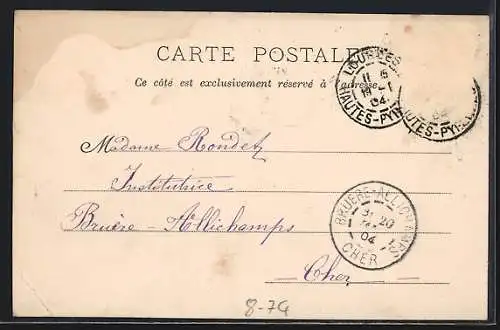 CARTE POSTALE
Ce côté est exclusivement réservé à l'adresse
LOURDES
11 5
19 -1
04
HAUTES-PYR
04
UTES-PYR
Madame Rondet
Institutrice
Bruère-Allichamps
BRUERE-ALLICHAMPS
20
04
CHER
Cher
8-74